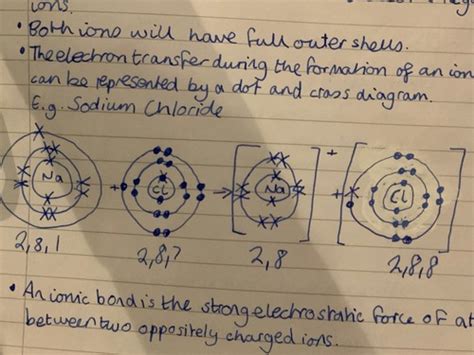 ions.
• Both ions will have full outer shells.
• The electron transfer during the formation of an ion
can be represented by a dot and cross diagram.
E.g. Sodium Chloride
Na + Cl → [Na]+ + [Cl
2,8,1 2,8,7 2,8 2,8,8
• An ionic bond is the strong electrostatic force of at
between two oppositely charged ions.